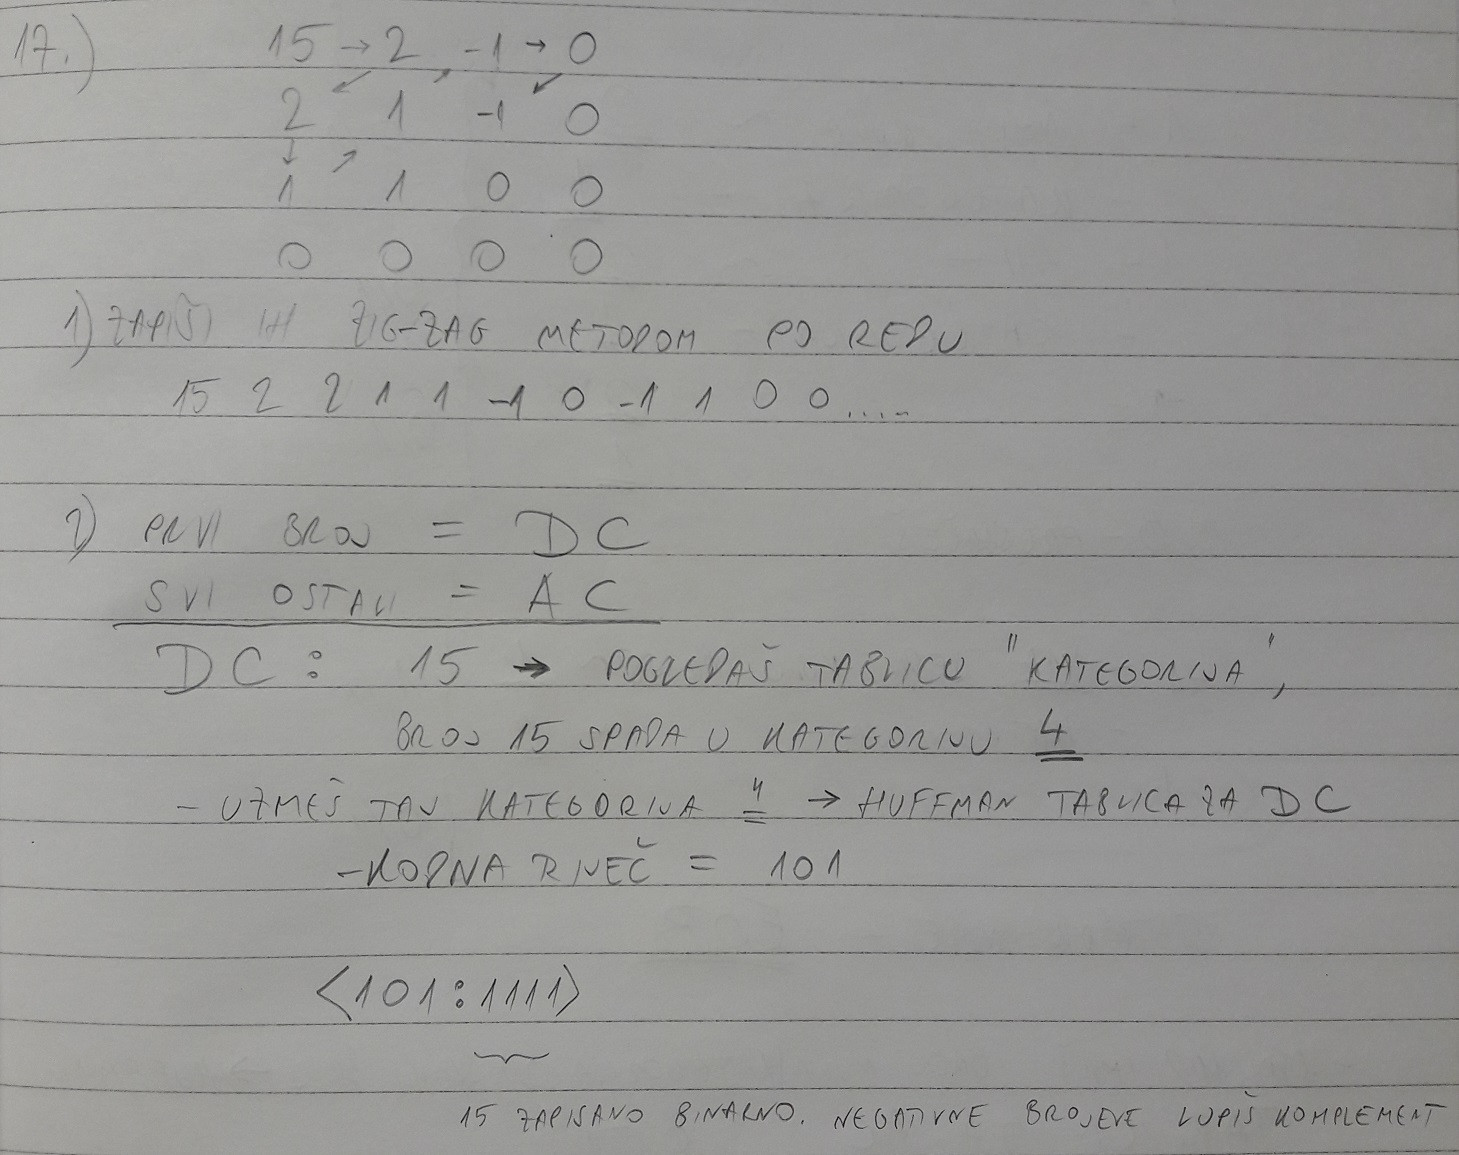 17.) 15 → 2 -1 → 0
2 1 -1 0
1 1 0 0
0 0 0 0
1) ZAPIŠI IH ZIG-ZAG METODOM PO REDU
15 2 2 1 1 -1 0 -1 1 0 0.....
2) PRVI BROJ = DC
SVI OSTALI = AC
DC: 15 → POGLEDAŠ TABLICU "KATEGORIJA",
BROJ 15 SPADA U KATEGORIJU 4
- UZMEŠ TAJ KATEGORIJA 4 → HUFFMAN TABLICA ZA DC
-KODNA RIJEČ = 101
<101:1111>
15 ZAPISANO BINARNO. NEGATIVNE BROJEVE LUPIŠ KOMPLEMENT